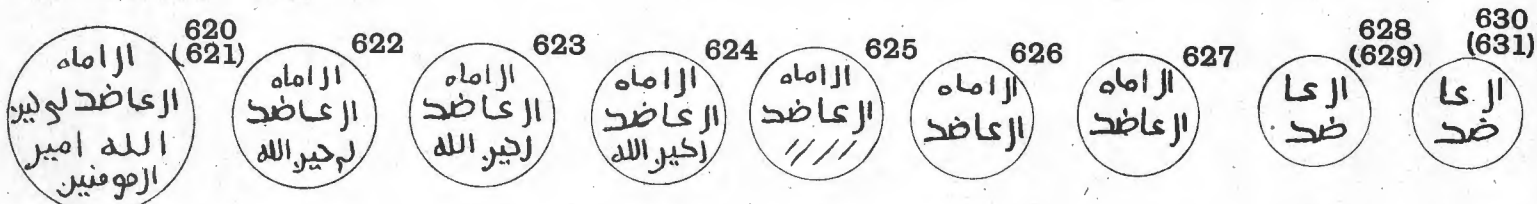 620
(621)
الامام
العاضد لدين
الله امير
المومنين
622
الامام
العاضد
لدين الله
623
الامام
العاضد
لدين الله
624
الامام
العاضد
لدين الله
625
الامام
العاضد
626
الامام
العاضد
627
الامام
العاضد
628
(629)
العا
ضد
630
(631)
العا
ضد